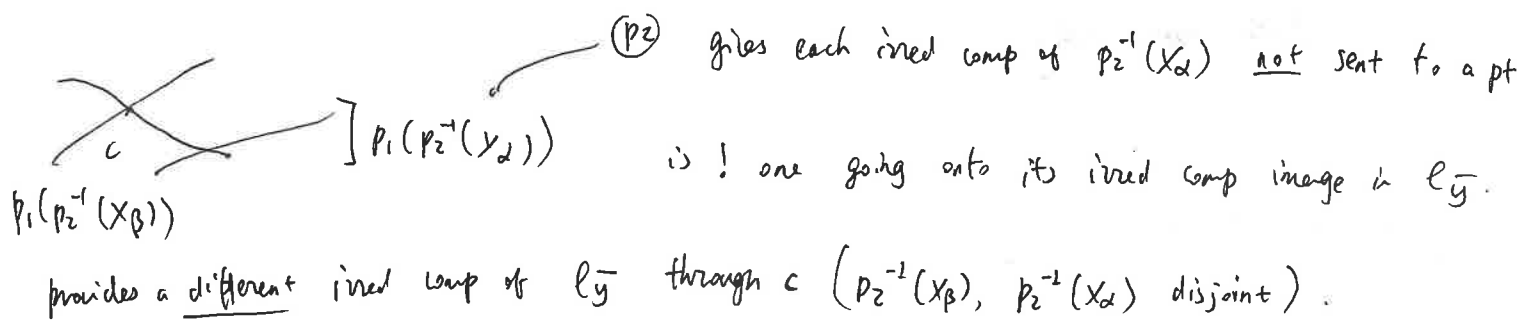 (P2) gives each irred comp of p₂⁻¹(X_α) not sent to a pt
] p₁(p₂⁻¹(X_α)) is ! one going onto its irred comp image in ℓ_ȳ.
c
p₁(p₂⁻¹(X_β))
provides a different irred comp of ℓ_ȳ through c (p₂⁻¹(X_β), p₂⁻¹(X_α) disjoint).